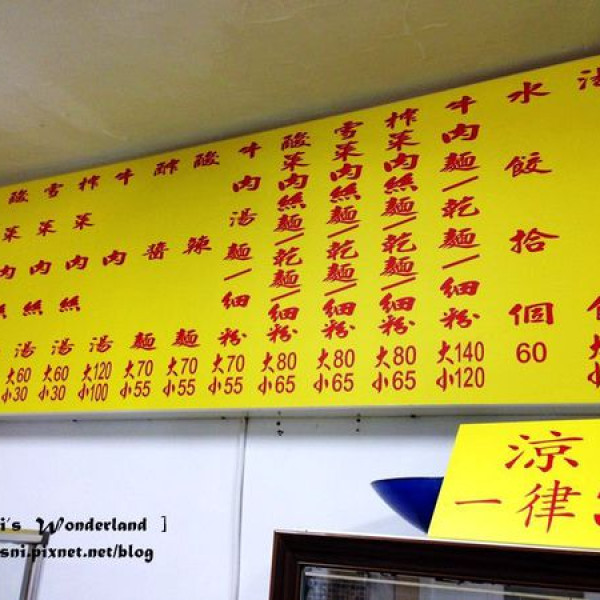 湯
水餃拾個
60
牛肉麵/乾麵/細粉
大140
小120
榨菜肉絲麵/乾麵/細粉
大80
小65
雪菜肉絲麵/乾麵/細粉
大80
小65
酸菜肉絲麵/乾麵/細粉
大80
小65
牛肉湯麵/細粉
大70
小55
酸辣麵
大70
小55
酢醬麵
大70
小55
牛肉湯
大120
小100
榨菜肉絲湯
大60
小30
雪菜肉絲湯
大60
小30
酸菜肉絲湯
涼
一律
i's Wonderland ]
sni.pixnet.net/blog